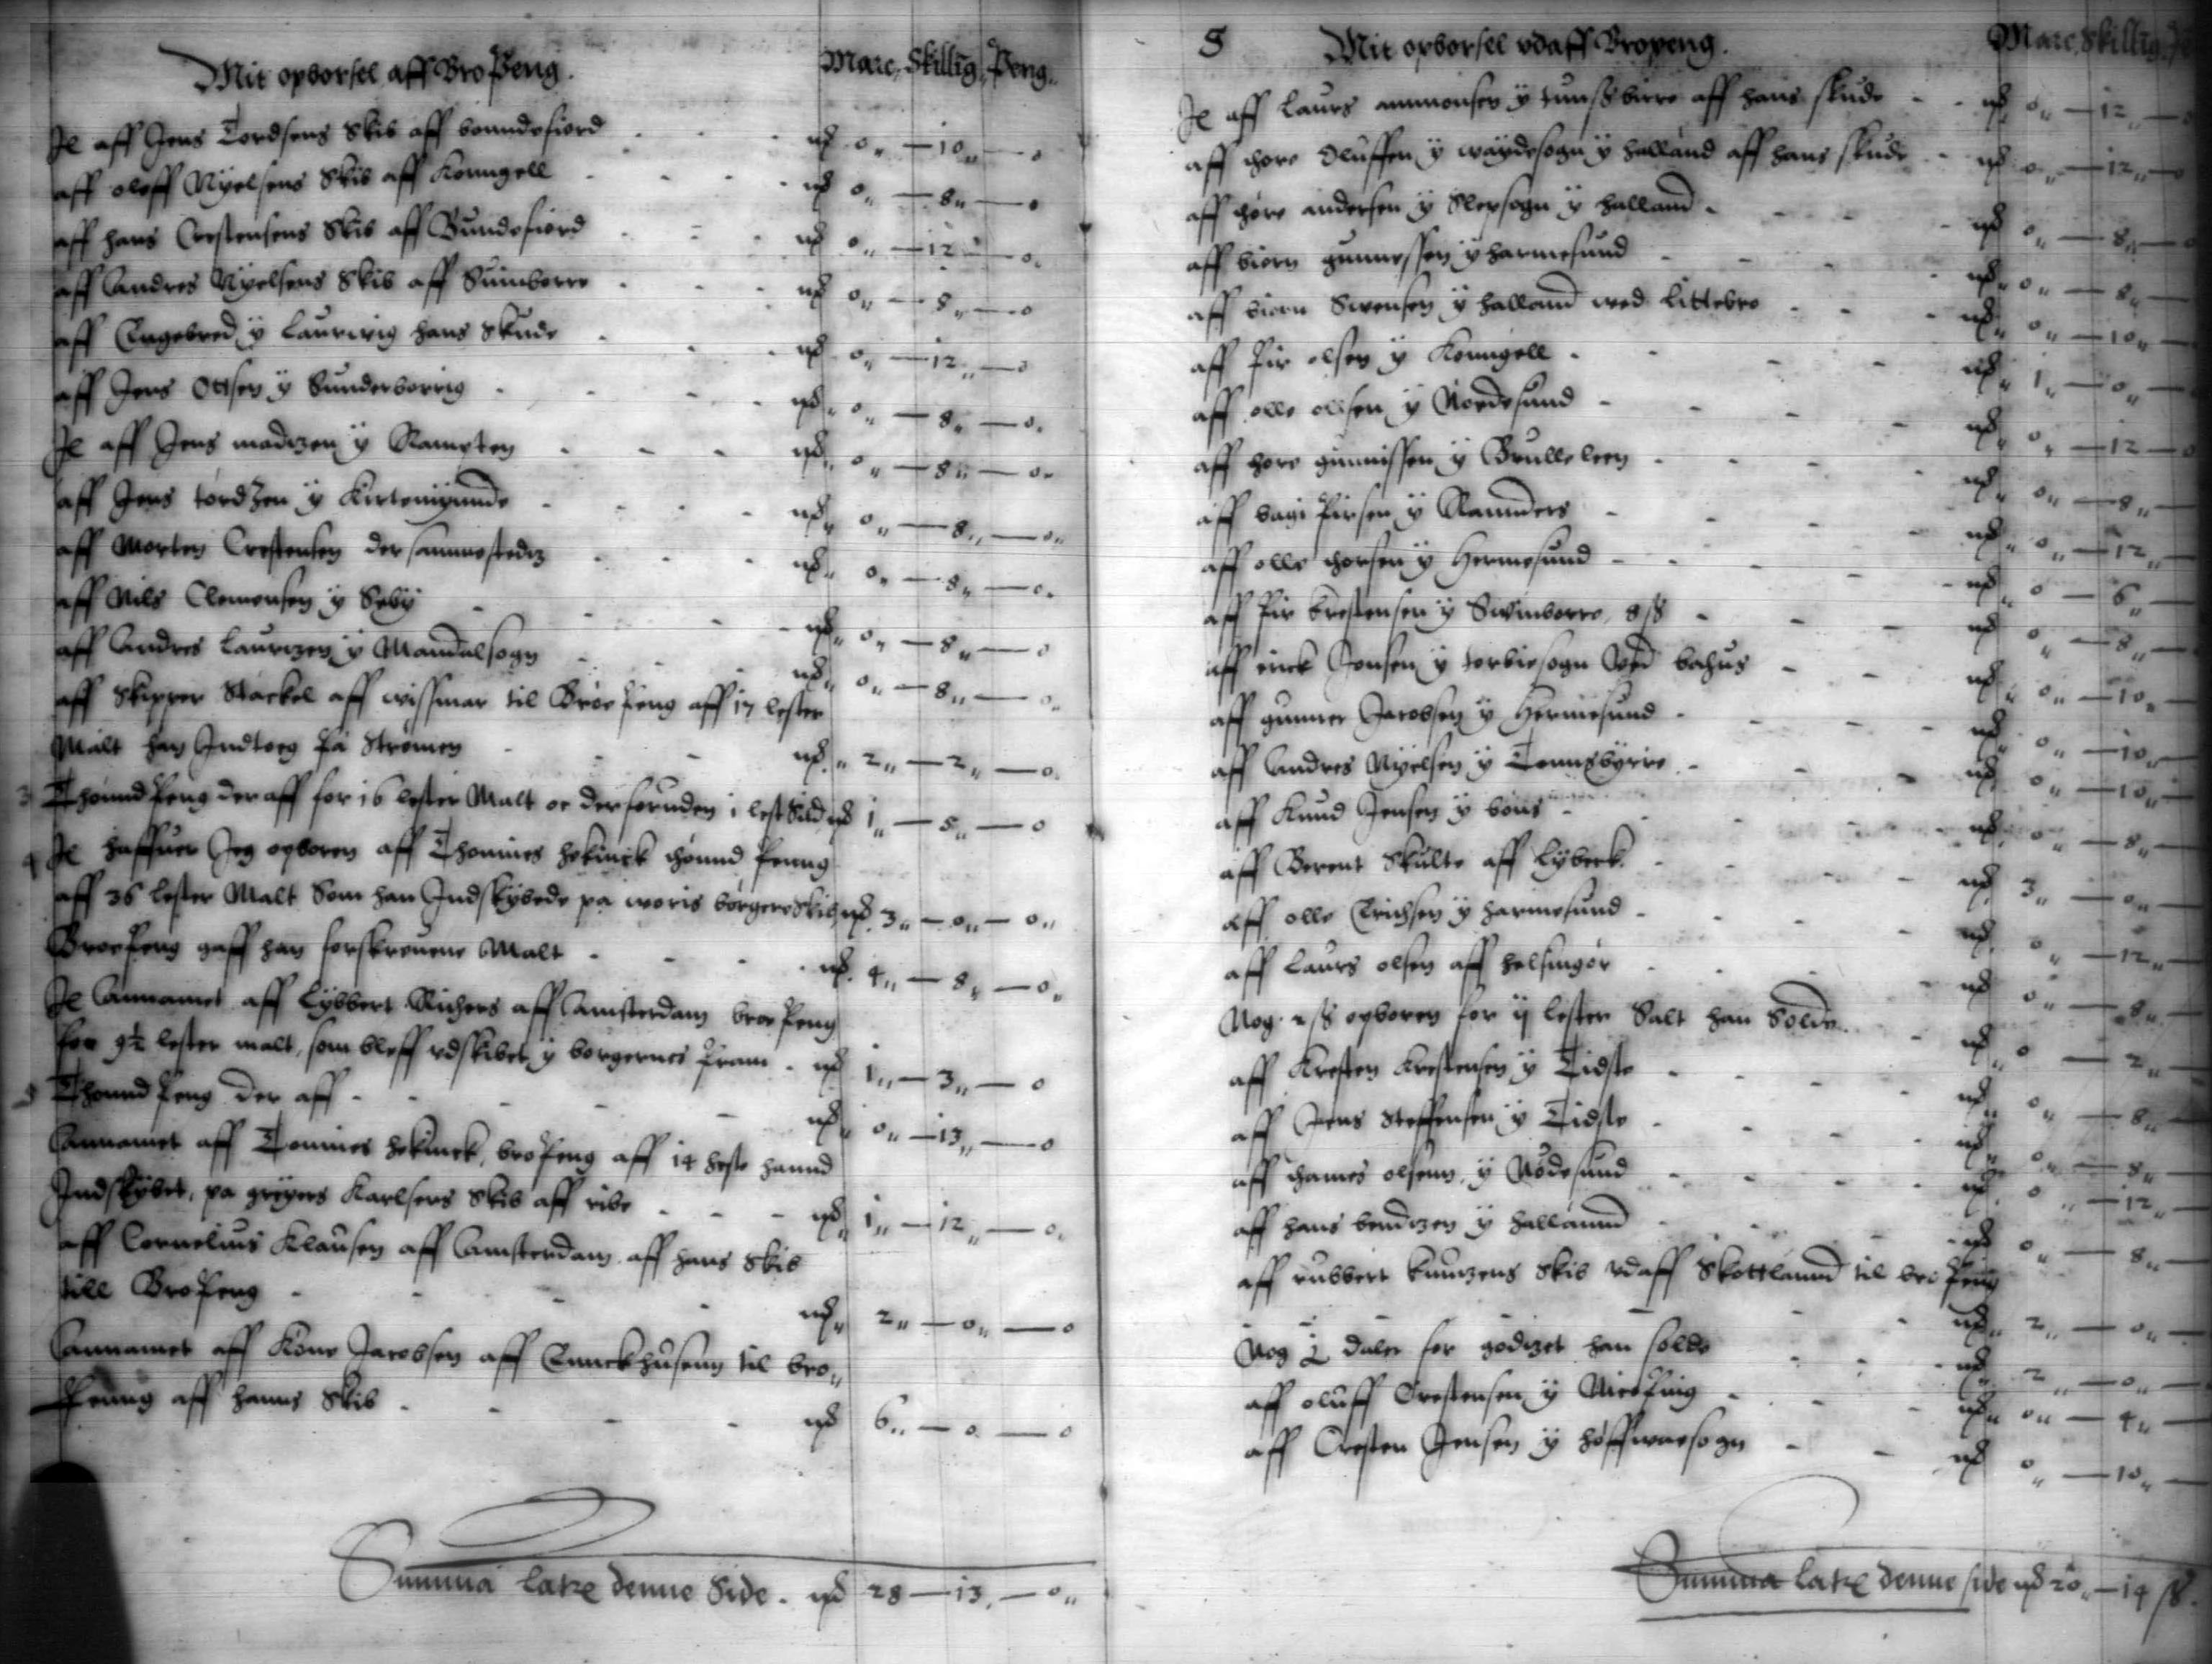 Mit opborsel aff Bropeng. Marc, Skillig, Peng.
It aff Jens Tordsens Skib aff bonndefiord mk 0 — 10 — 0
aff oloff Nyelsens Skib aff Konngell mk 0 — 8 — 0
aff hans Crestensens Skib aff Bundefiord mk 0 — 12 — 0
aff Andres Nyelsens Skib aff Suinborre mk 0 — 8 — 0
aff Engebred y Laurwig hans Skude mk 0 — 12 — 0
aff Jens Ottsen y Sunderborrig mk 0 — 8 — 0
It aff Jens madtzen y Kampten mk 0 — 8 — 0
aff Jens tordzen y Kirtemynnde mk 0 — 8 — 0
aff Morten Crestensen der sammestedtz mk 0 — 8 — 0
aff Nils Clemensen y Seby mk 0 — 8 — 0
aff Andres Laurtzen y Mandalsogn mk 0 — 8 — 0
aff Skipper Stackel aff wissmar til Broe peng aff 17 lester
Malt han Indtoeg pa Strømen mk 2 — 2 — 0
3 Thønnd peng der aff for 16 lester Malt oc der foruden 1 lest Sild mk 1 — 5 — 0
4 It haffuer Jeg opboren aff Thonnies hekinck thønnd penng
aff 36 lester Malt Som han Indskybede pa woris borgere Skib mk 3 — 0 — 0
Broe peng gaff han forskreuene Malt mk 4 — 8 — 0
It Annamet aff Lybbert Richers aff Amsterdam broe peng
for 9½ lester malt, som bleff vdskibet y borgernes pram mk 1 — 3 — 0
5 Thønnd peng der aff mk 0 — 13 — 0
Annamet aff Tonnies hekinck, bro peng aff 14 heste hannd
Indskybet, pa greyers Karlsens Skib aff ribe mk 1 — 12 — 0
aff Cornelius Klausen aff Amsterdam aff hans Skib
till Bro peng mk 2 — 0 — 0
Annamet aff Køne Jacobsen aff Ennckhusenn til bro
penng aff hanns Skib mk 6 — 0 — 0
Summa latz denne Side mk 28 — 13 — 0
5 Mit opborsel vdaff Bropeng. Marc, Skillig
It aff Laurs ammonsen y tunsbierre aff hans skude mk 0 — 12 — 0
aff thore Oluffsen y waydesogn y halland aff hans skude mk 0 — 12 — 0
aff thore andersen y Slepsogn y halland mk 0 — 8 — 0
aff biørn gunnessen y harmesund mk 0 — 8
aff biørn Swensen y halland wed Littebro mk 0 — 10
aff pir olsen y Konngell mk 1 — 0
aff olle ollsen y Nordesund mk 0 — 12 — 0
aff thore gunnissen y Brulleleen mk 0 — 8
aff bagi pirsen y Rannders mk 0 — 12
aff olle thorsen y Hermesund mk 0 — 6
aff pir Krestensen y Swinborre 8 ß mk 0 — 8
aff erick Jensen y torbiesogn wed bahus mk 0 — 10
aff gunner Jacobsen y Hermesund mk 0 — 10
aff Andres Nyelsen y Tonnsbyrre mk 0 — 10
aff Knud Jensen y bons mk 0 — 8
aff Berent Skulte aff Lybeck mk 3 — 0
aff olle Erichsen y harmesund mk 0 — 12
aff Laurs olsen aff helsingør mk 0 — 8
Nog 2 ß opboren for ij lester Salt han Solde mk 0 — 2
aff Kresten Krestensen y Tidste mk 0 — 8
aff Jens Steffensen y Tidste mk 0 — 8
aff thames olsenn y Nødesund mk 0 — 12
aff hans bendtzen y hallannd mk 0 — 8
aff rubbert kuntzens Skib vdaff Skottlannd til bro peng
mk 2 — 0
Nog ½ daler for godtzet han solde mk 2 — 0
aff oluff Crestensen y Nicøping mk 0 — 4
aff Cresten Jensen y høffwaesogn mk 0 — 10
Summa latz denne side mk 20 — 14 ß